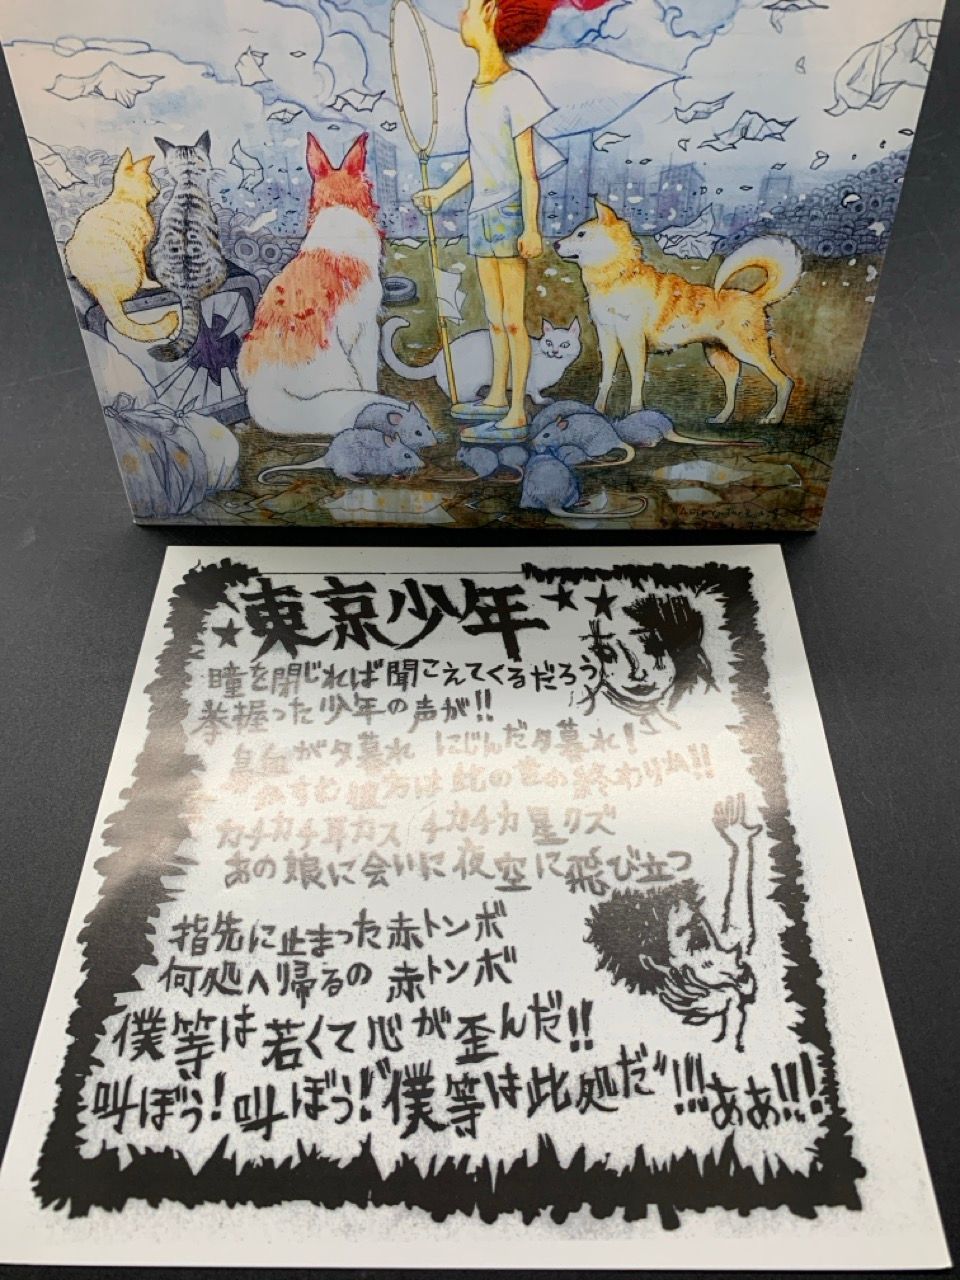 ★東京少年★★
瞳を閉じれば聞こえてくるだろう
拳握った少年の声が!!
鼻血が夕暮れ にじんだ夕暮れ!
かすむ彼方は此の世の終わりか!!
カチカチ耳カス チカチカ星クズ
あの娘に会いに夜空に飛び立つ
指先に止まった赤トンボ
何処へ帰るの 赤トンボ
僕等は若くて心が歪んだ!!
叫ぼう!叫ぼう!僕等は此処だ!!!ああ!!!